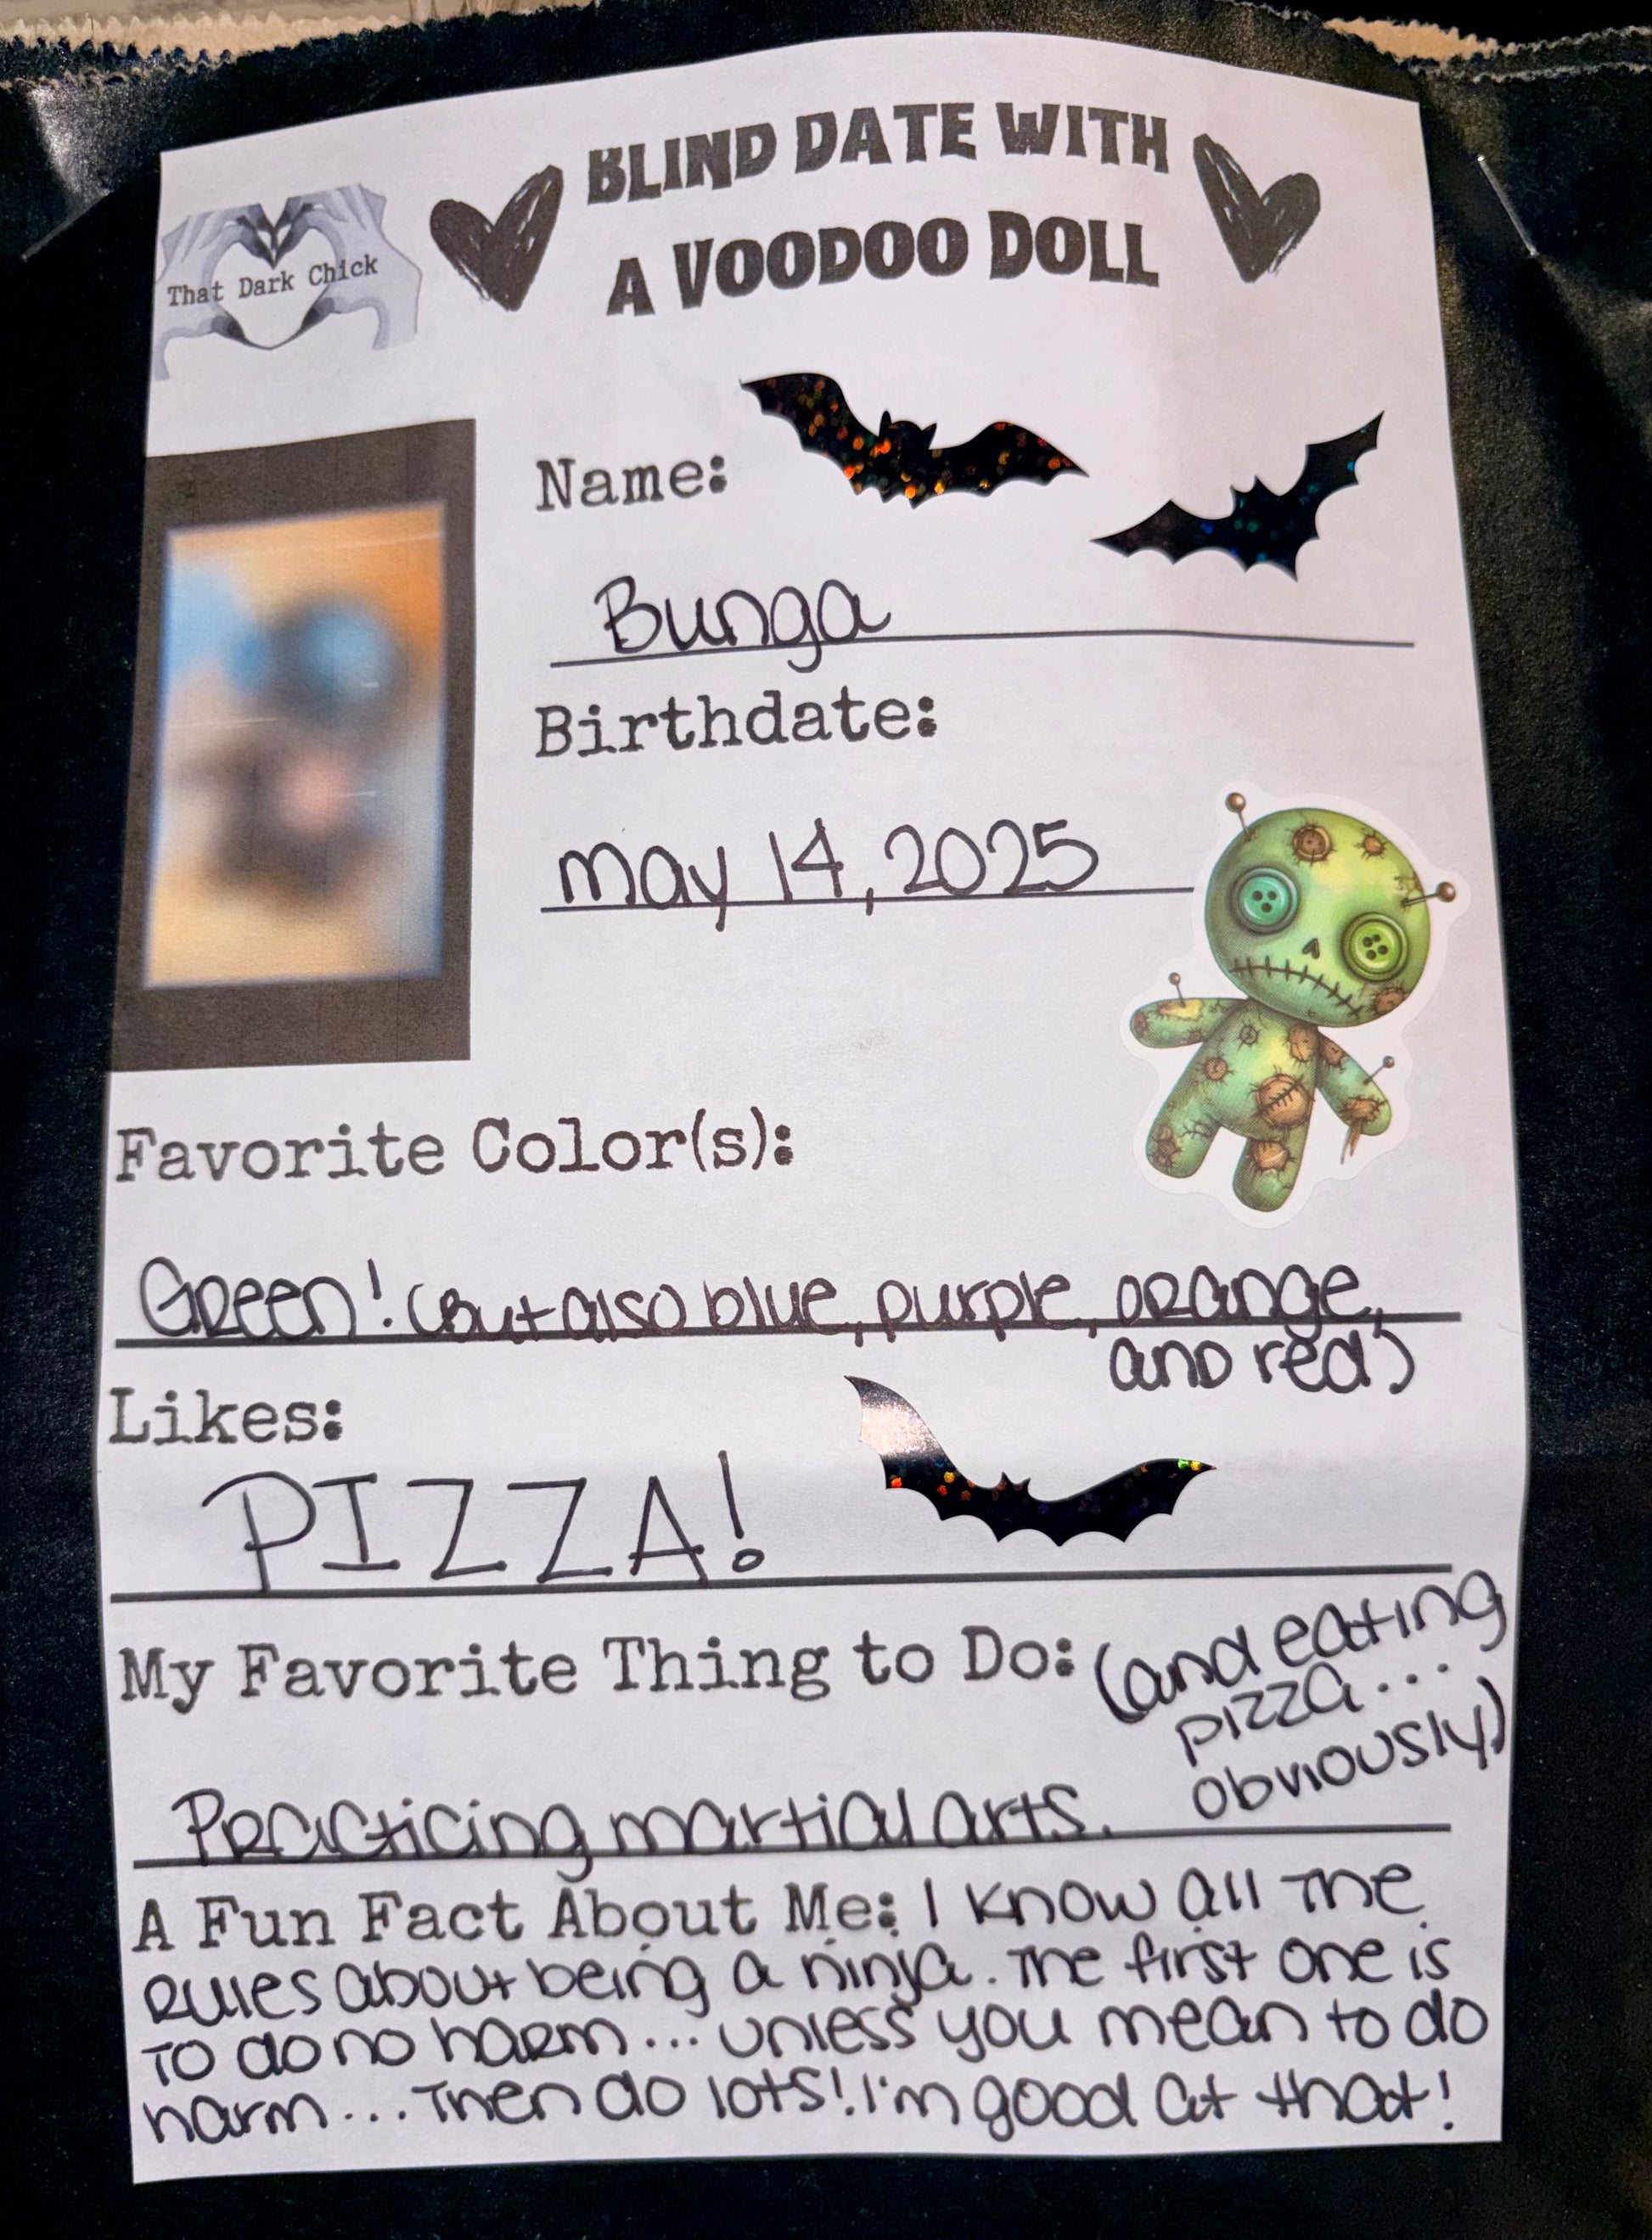 BLIND DATE WITH
A VOODOO DOLL
That Dark Chick
Name:
Bunga
Birthdate:
May 14, 2025
Favorite Color(s):
Green! (But also blue, purple, orange,
and red)
Likes:
PIZZA!
My Favorite Thing to Do:
(and eating
pizza...
obviously)
Practicing martial arts.
A Fun Fact About Me: I know all the
rules about being a ninja. The first one is
to do no harm... unless you mean to do
harm... Then do lots! I'm good at that!